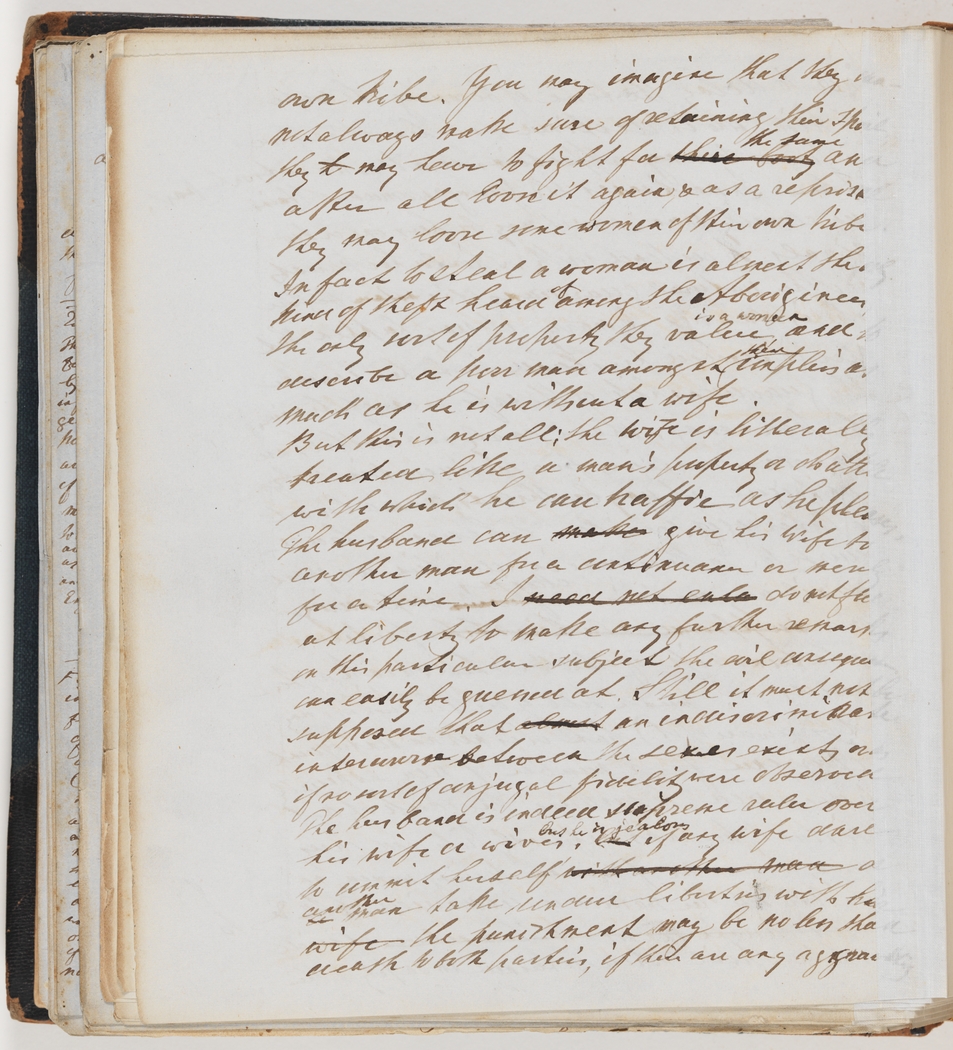 own tribe. You may imagine that they
not always make sure of retaining their
the same
they may have to fight for their booty an
after all loose it again, & as a repris
they may loose some women of their own tribe
In fact to steal a woman is almost the
kind of theft heard of among the Aborigines
is a woman
the only sort of property they value and
them
describe a poor man amongst implies as
much as he is without a wife.
But this is not all; the wife is litterally
treated like a man's property or chatt
with which he can traffic as he plea
The husband can make give his wife to
another man for a continuance or mere
for a time. I need not do not feel
at liberty to make any further remark
on this particular subject the evil consequen
can easily be guessed at. Still it must not
supposed that an indiscriminat
intercourse between the sexes exists or
if no sort of conjugal fidelity were observed
The husband is indeed supreme ruler over
but he is jealous
his wife or wives, & if any wife dare
to commit herself with another man o
another
man take undue liberties with his
wife the punishment may be no less tha
death to both parties, if there are any aggrav